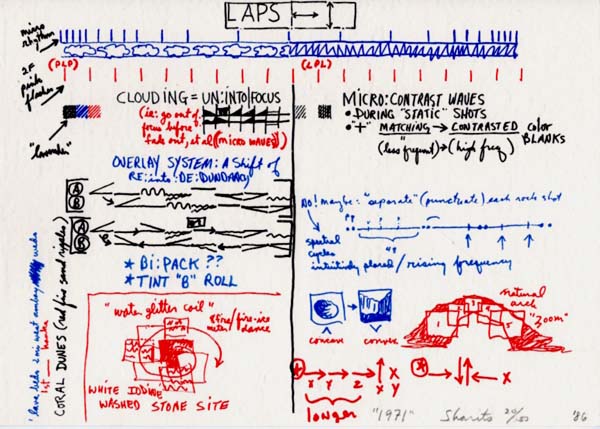 LAPS
micro
rhythm
(PLP)
(LPL)
2F
pink
flashes
"lavender"
CLOUDING = UN:INTO/FOCUS
(ie: go out of
focus before
fade out, et al (micro waves))
OVERLAY SYSTEM: A Shift of
RE:into:DE:DUNDANCY
A
B
A
B
* Bi:PACK ??
* TINT "B" ROLL
MICRO:CONTRAST WAVES
• DURING "STATIC" SHOTS
• "+" MATCHING → CONTRASTED color
BLANKS
(less frequent) → (high freq)
NO! maybe: "separate" (punctuate) each rock shot
spectral
cycles
intuitively placed/rising frequency
concave
convex
natural
arch
"zoom"
CORAL DUNES (red fine sand ripples)
lava beds 2 mi west
"water glitter coil"
dance
WHITE IODINE
WASHED STONE SITE
X Y Z X
Y
longer
X
"1971" Sharits 20/50 '86